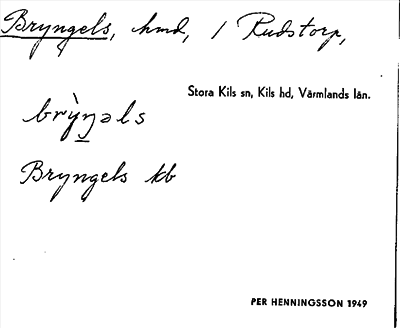 Bryngels, hmd, / Rudstorp,
Stora Kils sn, Kils hd, Värmlands län.
brỳŋəls
Bryngels kb
PER HENNINGSSON 1949